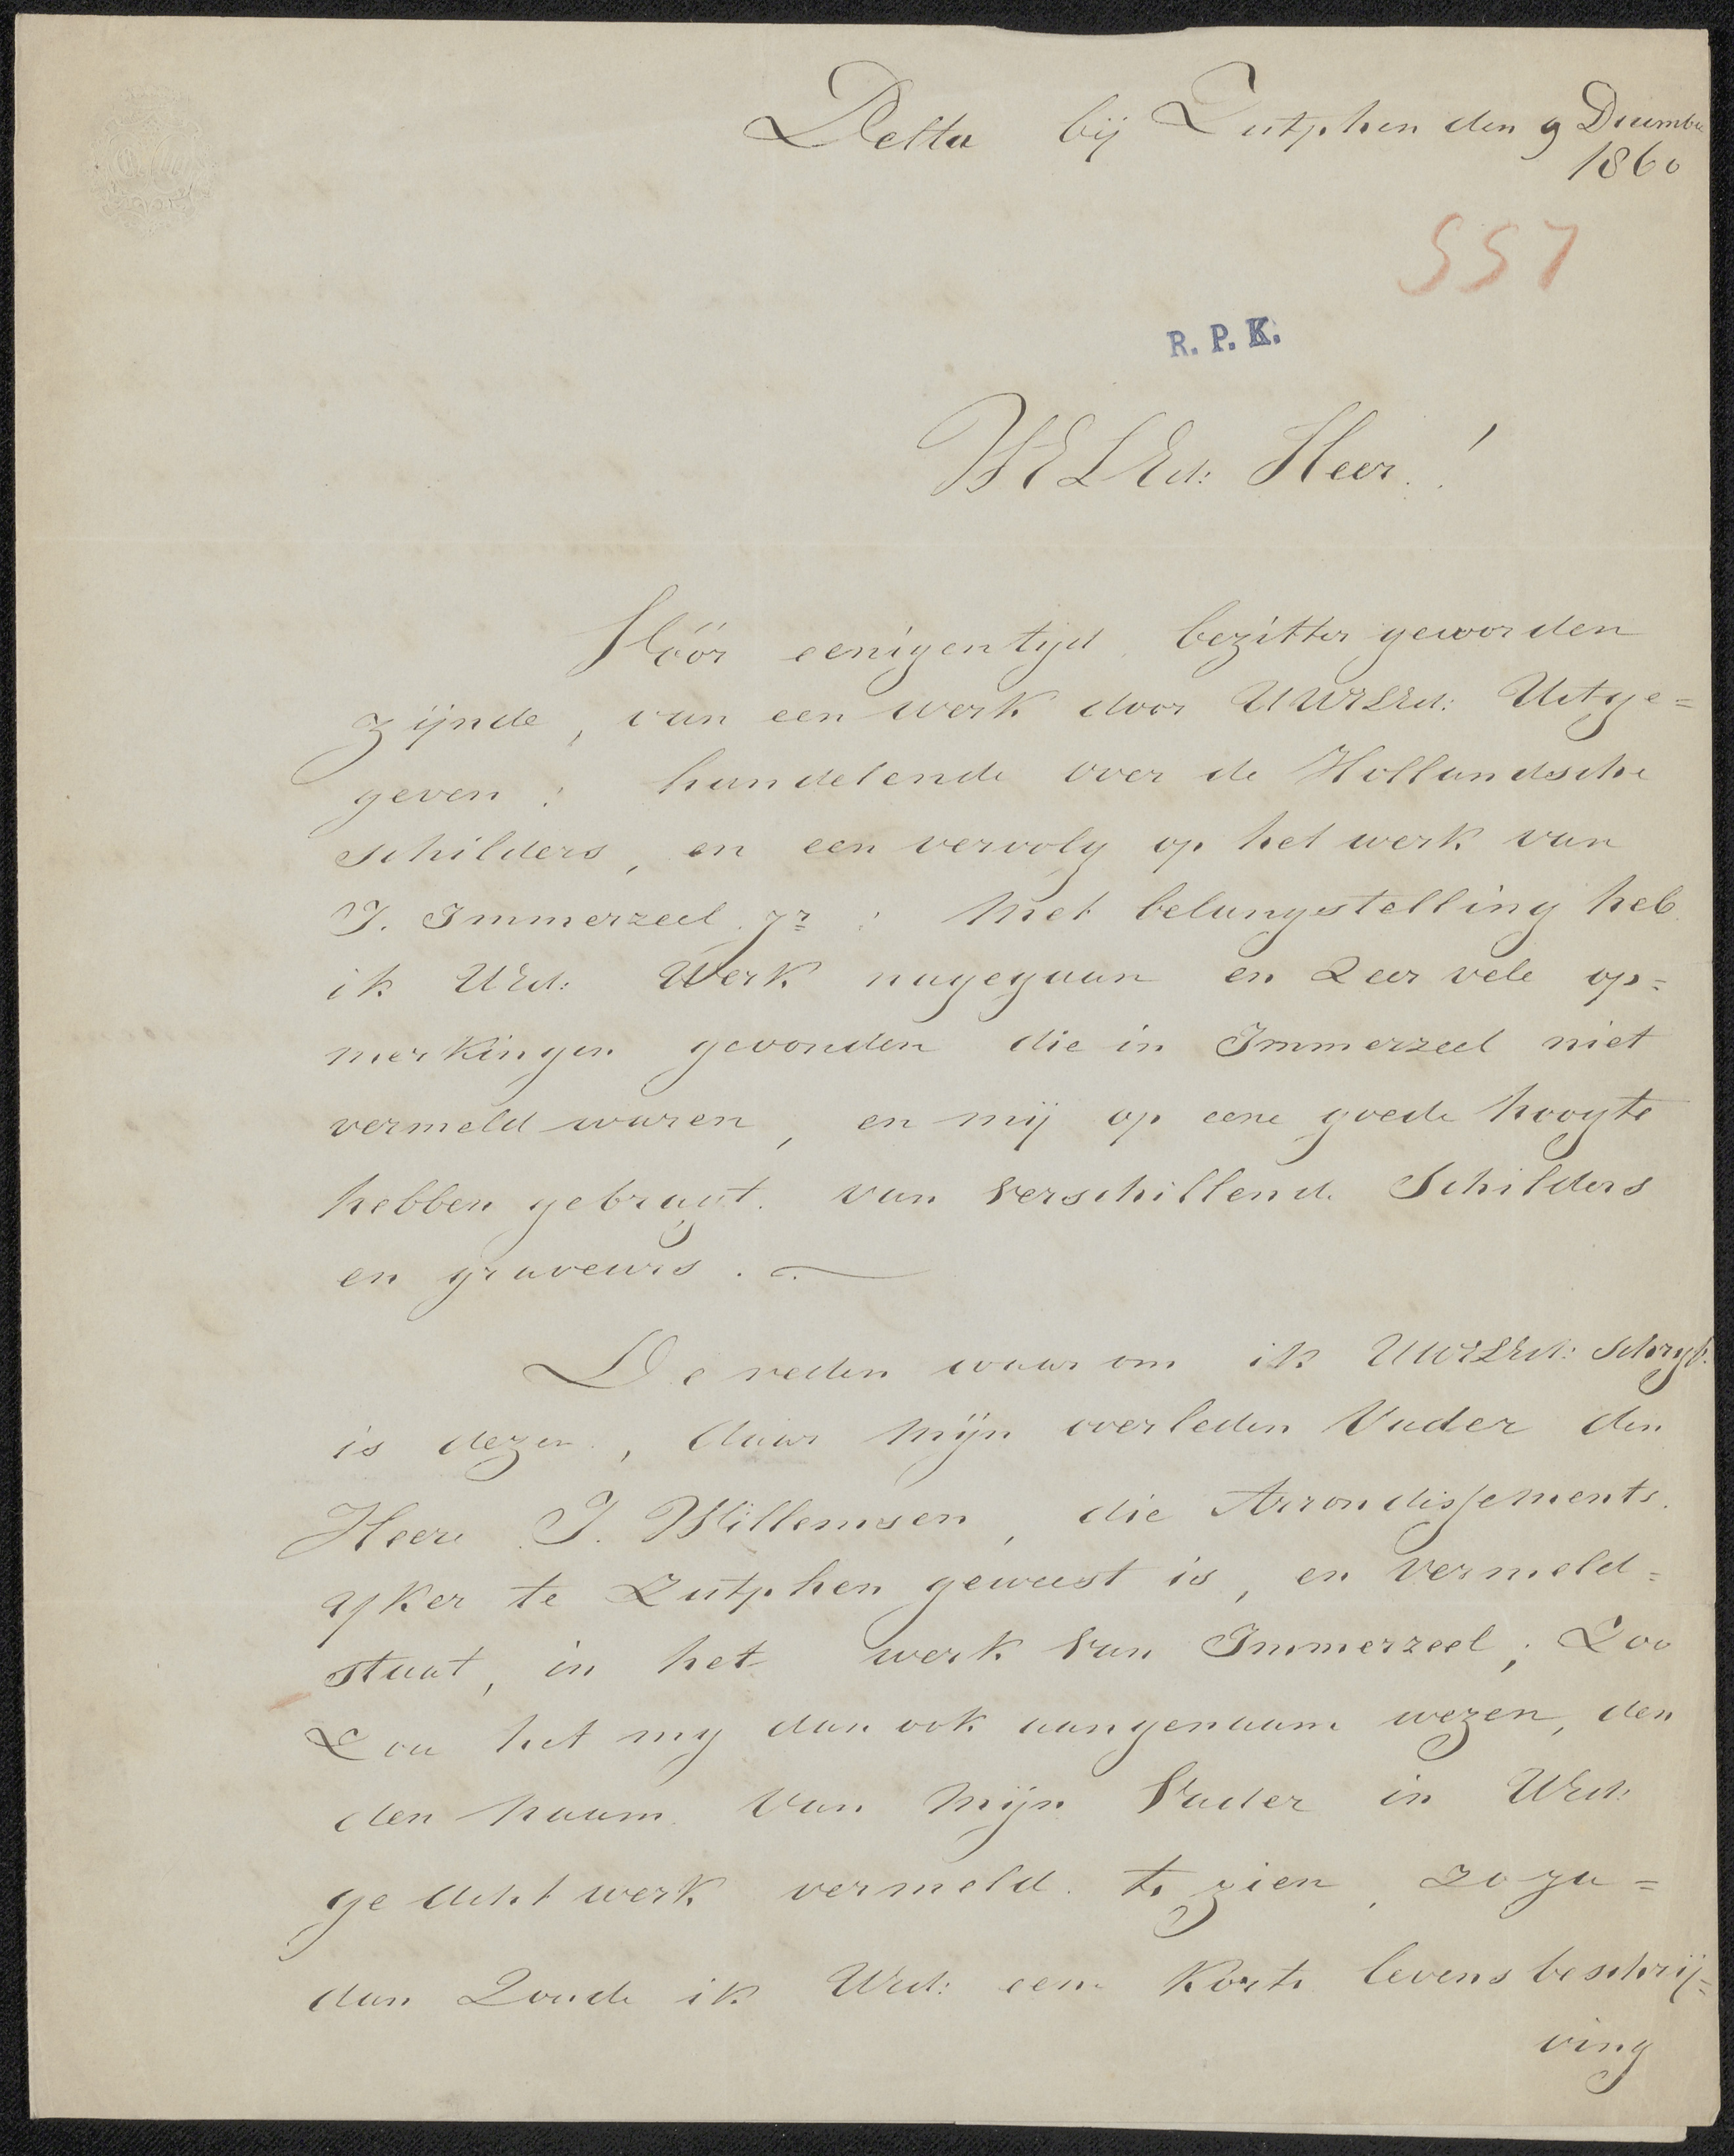 Delta bij Zutphen den 9 December
1860
557
R. P. K.
WELEd: Heer!
Vóór eenigen tijd bezitter geworden
zijnde, van een werk door UWELEd: Uitge=
geven: handelende over de Hollandsche
schilders, en een vervolg op het werk van
J. Immerzeel jr: Met belangstelling heb
ik UEd: Werk nagegaan en Zeer vele op=
merkingen gevonden die in Immerzeel niet
vermeld waren, en mij op eene goede hoogte
hebben gebragt van verschillende Schilders
en graveurs.
De reden waarom ik UWELEd: schryf
is dezen, daar mijn overleden Vader den
Heere J. Willemsen, die Arrondissements
yker te Zutphen geweest is, en vermeld=
staat, in het werk van Immerzeel; Zoo
Zou het my dan ook aangenaam wezen, den
den naam van mijn Vader in UEd:
gedeht werk vermeld te zien, zoja=
dan Zoude ik UEd: eene Korte levensbeschrij=
ving